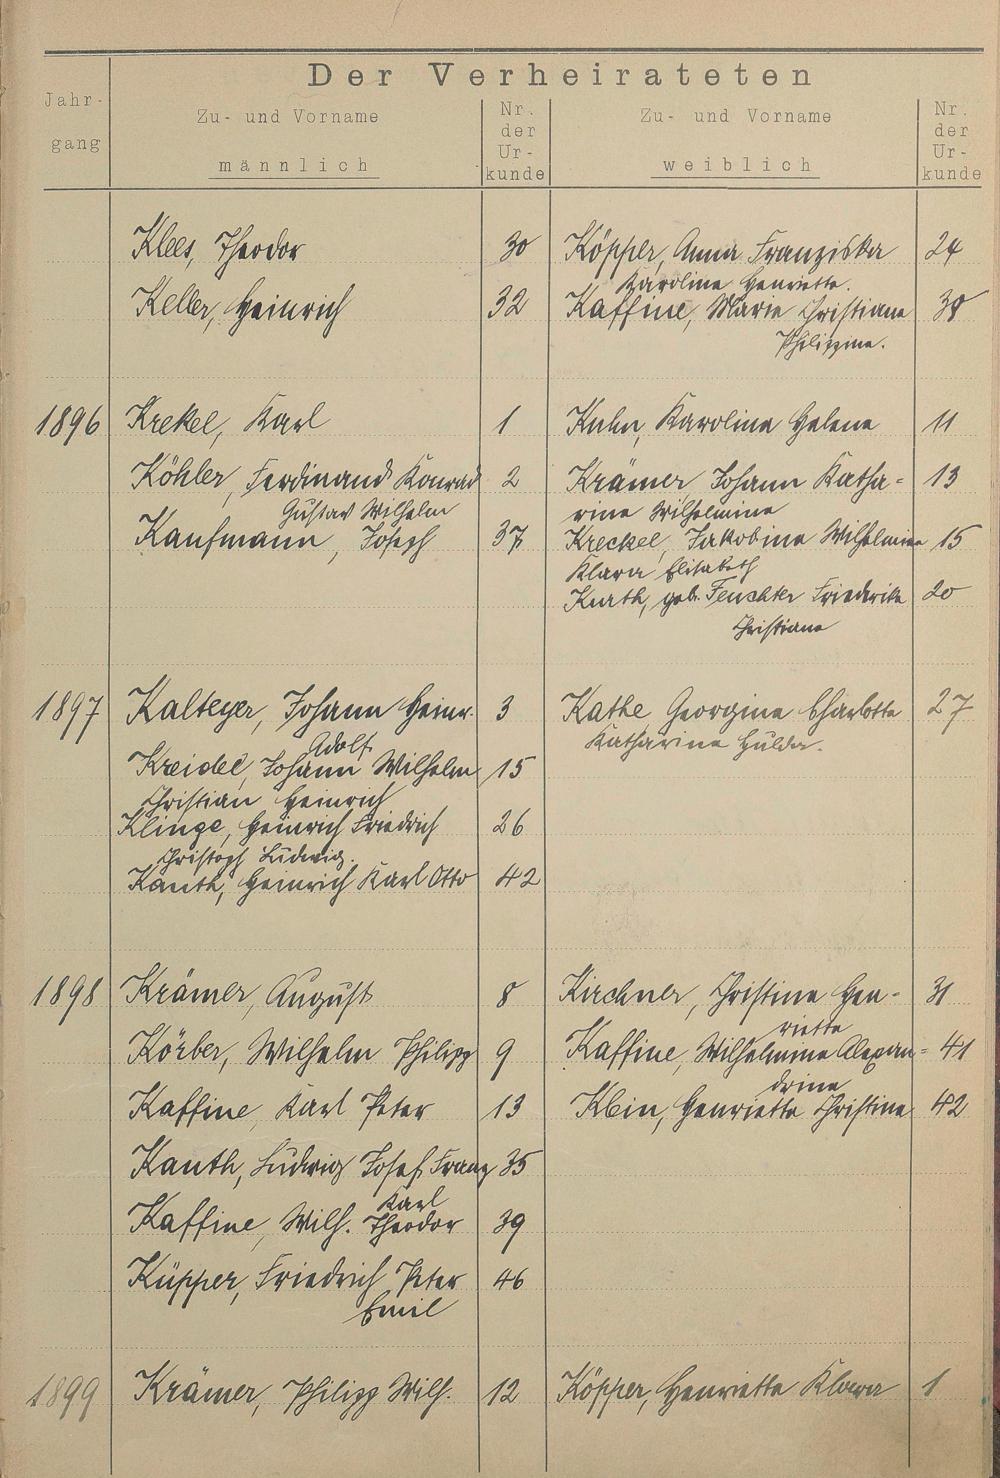 Der Verheirateten
Jahr-
gang
Zu- und Vorname
männlich
Nr.
der
Ur-
kunde
Zu- und Vorname
weiblich
Nr.
der
Ur-
kunde
Klees, Theodor 30 Köpper, Anna Franziska 24
Karoline Henriette.
Keller, Heinrich 32 Kaffine, Marie Christiane 38
Philippine.
1896 Krekel, Karl 1 Kuhn, Karoline Helene 11
Köhler, Ferdinand Konrad 2 Krämer Johann Katha- 13
Gustav Wilhelm rine Wilhelmine
Kaufmann, Joseph 37 Kreckel, Jakobine Wilhelmine 15
Klara Elisabeth
Kurth, geb. Feuchter Friederike 20
Christiane
1897 Kalteyer, Johann Heinr. 3 Kathe Georgine Charlotte 27
Adolf Katharine Hulda.
Kreidel, Johann Wilhelm 15
Christian Heinrich
Klinge, Heinrich Friedrich 26
Christoph Ludwig.
Kauth, Heinrich Karl Otto 42
1898 Krämer, August 8 Kirchner, Christine Hen- 31
riette
Körber, Wilhelm Philipp 9 Kaffine, Wilhelmine Alexan- 41
drine
Kaffine, Karl Peter 13 Klein, Henriette Christine 42
Kauth, Ludwig Josef Franz 35
Karl
Kaffine, Wilh. Theodor 39
Küpper, Friedrich Peter 46
Emil
1899 Krämer, Philipp Wilh. 12 Köpper, Henriette Klara 1